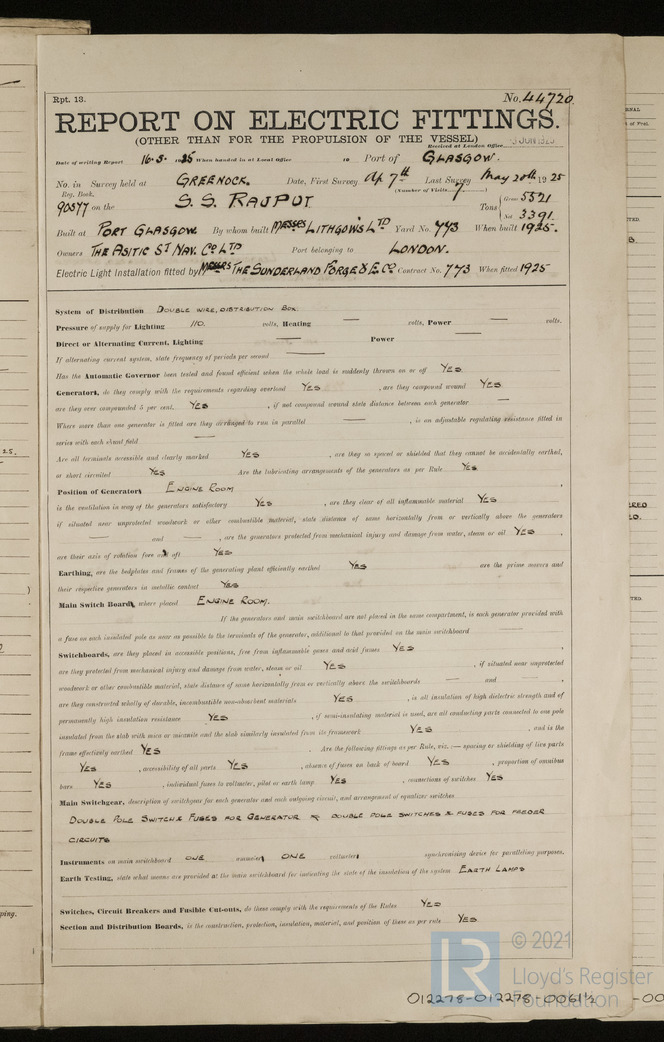 Rpt. 13.
No. 44720.
REPORT ON ELECTRIC FITTINGS.
(OTHER THAN FOR THE PROPULSION OF THE VESSEL)
Received at London Office
Date of writing Report 16.5. 1925 When handed in at Local Office 19 Port of GLASGOW.
No. in Survey held at GREENOCK. Date, First Survey Ap 7th Last Survey May 20th 1925
Reg. Book. (Number of Visits 7)
90577 on the S.S. RAJPUT Tons { Gross 5521
Net 3391
Built at PORT GLASGOW By whom built MESSRS LITHGOWS LTD Yard No. 773 When built 1925.
Owners THE ASITIC ST NAV. CO LTD Port belonging to LONDON.
Electric Light Installation fitted by MESSRS THE SUNDERLAND FORGE & E. CO Contract No. 773 When fitted 1925
System of Distribution DOUBLE WIRE, DISTRIBUTION BOX
Pressure of supply for Lighting 110. volts, Heating — volts, Power — volts.
Direct or Alternating Current, Lighting — Power —
If alternating current system, state frequency of periods per second —
Has the Automatic Governor been tested and found efficient when the whole load is suddenly thrown on or off YES
Generators, do they comply with the requirements regarding overload YES , are they compound wound YES
are they over compounded 5 per cent. YES , if not compound wound state distance between each generator —
Where more than one generator is fitted are they arranged to run in parallel — , is an adjustable regulating resistance fitted in
series with each shunt field —
Are all terminals accessible and clearly marked YES , are they so spaced or shielded that they cannot be accidentally earthed,
or short circuited YES Are the lubricating arrangements of the generators as per Rule YES
Position of Generators ENGINE ROOM ,
is the ventilation in way of the generators satisfactory YES , are they clear of all inflammable material YES
if situated near unprotected woodwork or other combustible material, state distance of same horizontally from or vertically above the generators
— and — , are the generators protected from mechanical injury and damage from water, steam or oil YES ,
are their axis of rotation fore and aft YES
Earthing, are the bedplates and frames of the generating plant efficiently earthed YES are the prime movers and
their respective generators in metallic contact YES
Main Switch Boards, where placed ENGINE ROOM.
If the generators and main switchboard are not placed in the same compartment, is each generator provided with
a fuse on each insulated pole as near as possible to the terminals of the generator, additional to that provided on the main switchboard
Switchboards, are they placed in accessible positions, free from inflammable gases and acid fumes YES ,
are they protected from mechanical injury and damage from water, steam or oil YES , if situated near unprotected
woodwork or other combustible material, state distance of same horizontally from or vertically above the switchboards — and — ,
are they constructed wholly of durable, incombustible non-absorbent materials YES , is all insulation of high dielectric strength and of
permanently high insulation resistance YES , if semi-insulating material is used, are all conducting parts connected to one pole
insulated from the slab with mica or micanite and the slab similarly insulated from its framework YES , and is the
frame effectively earthed YES . Are the following fittings as per Rule, viz.:— spacing or shielding of live parts
YES , accessibility of all parts YES , absence of fuses on back of board YES , proportion of omnibus
bars YES , individual fuses to voltmeter, pilot or earth lamp YES , connections of switches YES
Main Switchgear, description of switchgear for each generator and each outgoing circuit, and arrangement of equalizer switches
DOUBLE POLE SWITCH & FUSES FOR GENERATOR & DOUBLE POLE SWITCHES & FUSES FOR FEEDER
CIRCUITS
Instruments on main switchboard ONE ammeters ONE voltmeters synchronising device for paralleling purposes.
Earth Testing, state what means are provided at the main switchboard for indicating the state of the insulation of the system EARTH LAMPS
Switches, Circuit Breakers and Fusible Cut-outs, do these comply with the requirements of the Rules YES
Section and Distribution Boards, is the construction, protection, insulation, material, and position of these as per rule YES
© 2021
LR Lloyd's Register
Foundation
012278-012278-0061½